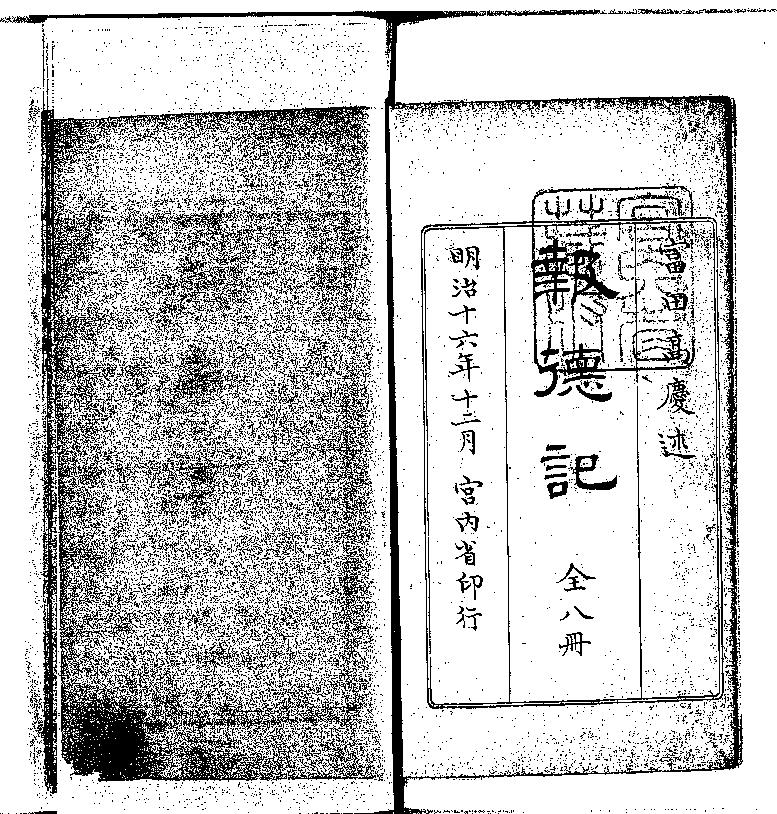 富田高慶述
報德記 全八冊
明治十六年十二月 宮內省印行